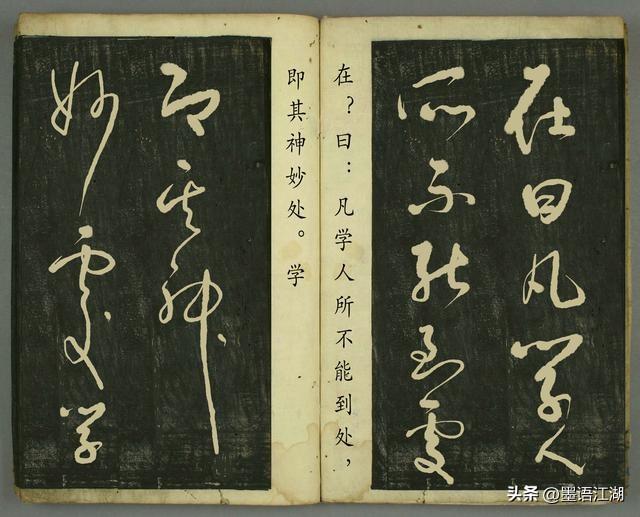 在曰凡學人
所不能到處
在？曰：凡学人所不能到处，
即其神妙处。学
即其神
妙處學
头条 @墨语江湖